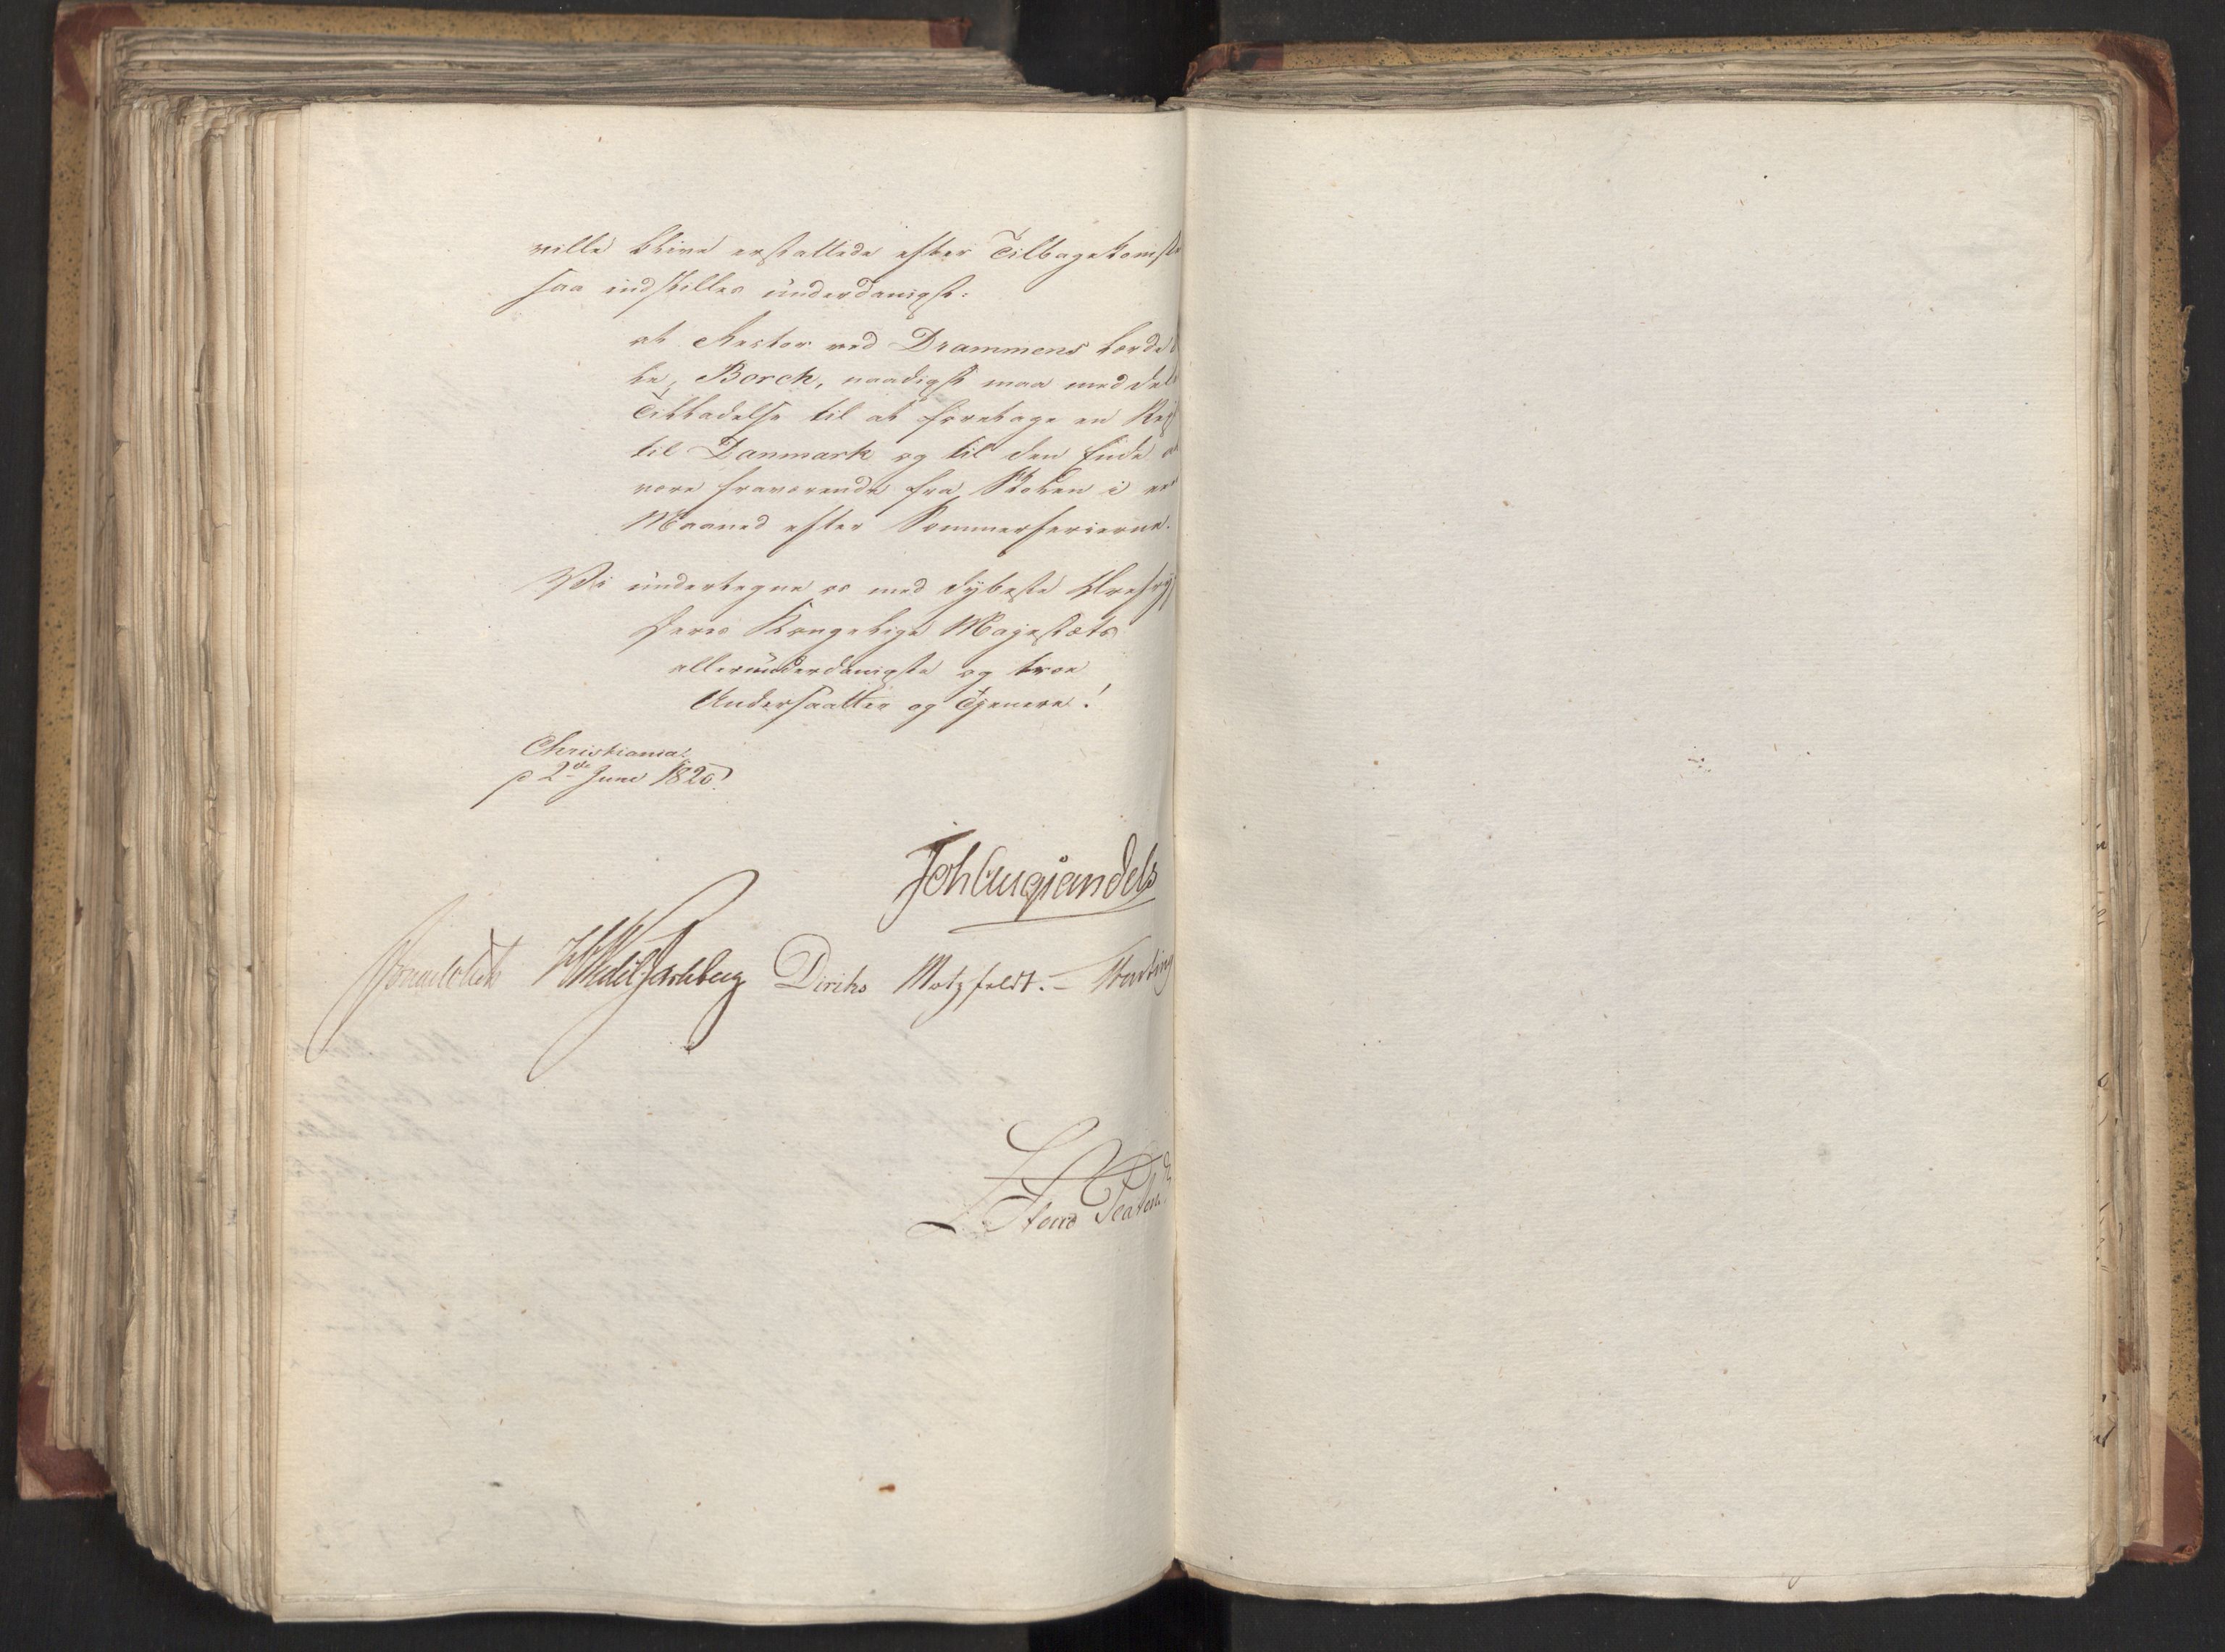 ville blive erstattede efter Tilbagekomste
saa indstilles underdanigst:
at Rector ved Drammens lærde
le, Borch, naadigst maa meddele
Tilladelse til at foretage en Rejs
til Danmark og til den Ende at
være fraværende fra Skolen i en
Maaned efter Sommerferierne.
Vi undertegne os med dybeste Ærefry
Deres Kongelige Majestæts
allerunderdanigste og troe
Undersaatter og Tjenere!
Christiania
d 2de Juni 1820.
Joh Aug Sandels
Sommerhielm HWedel Jarlsberg Diriks Motzfeldt. - Krefting